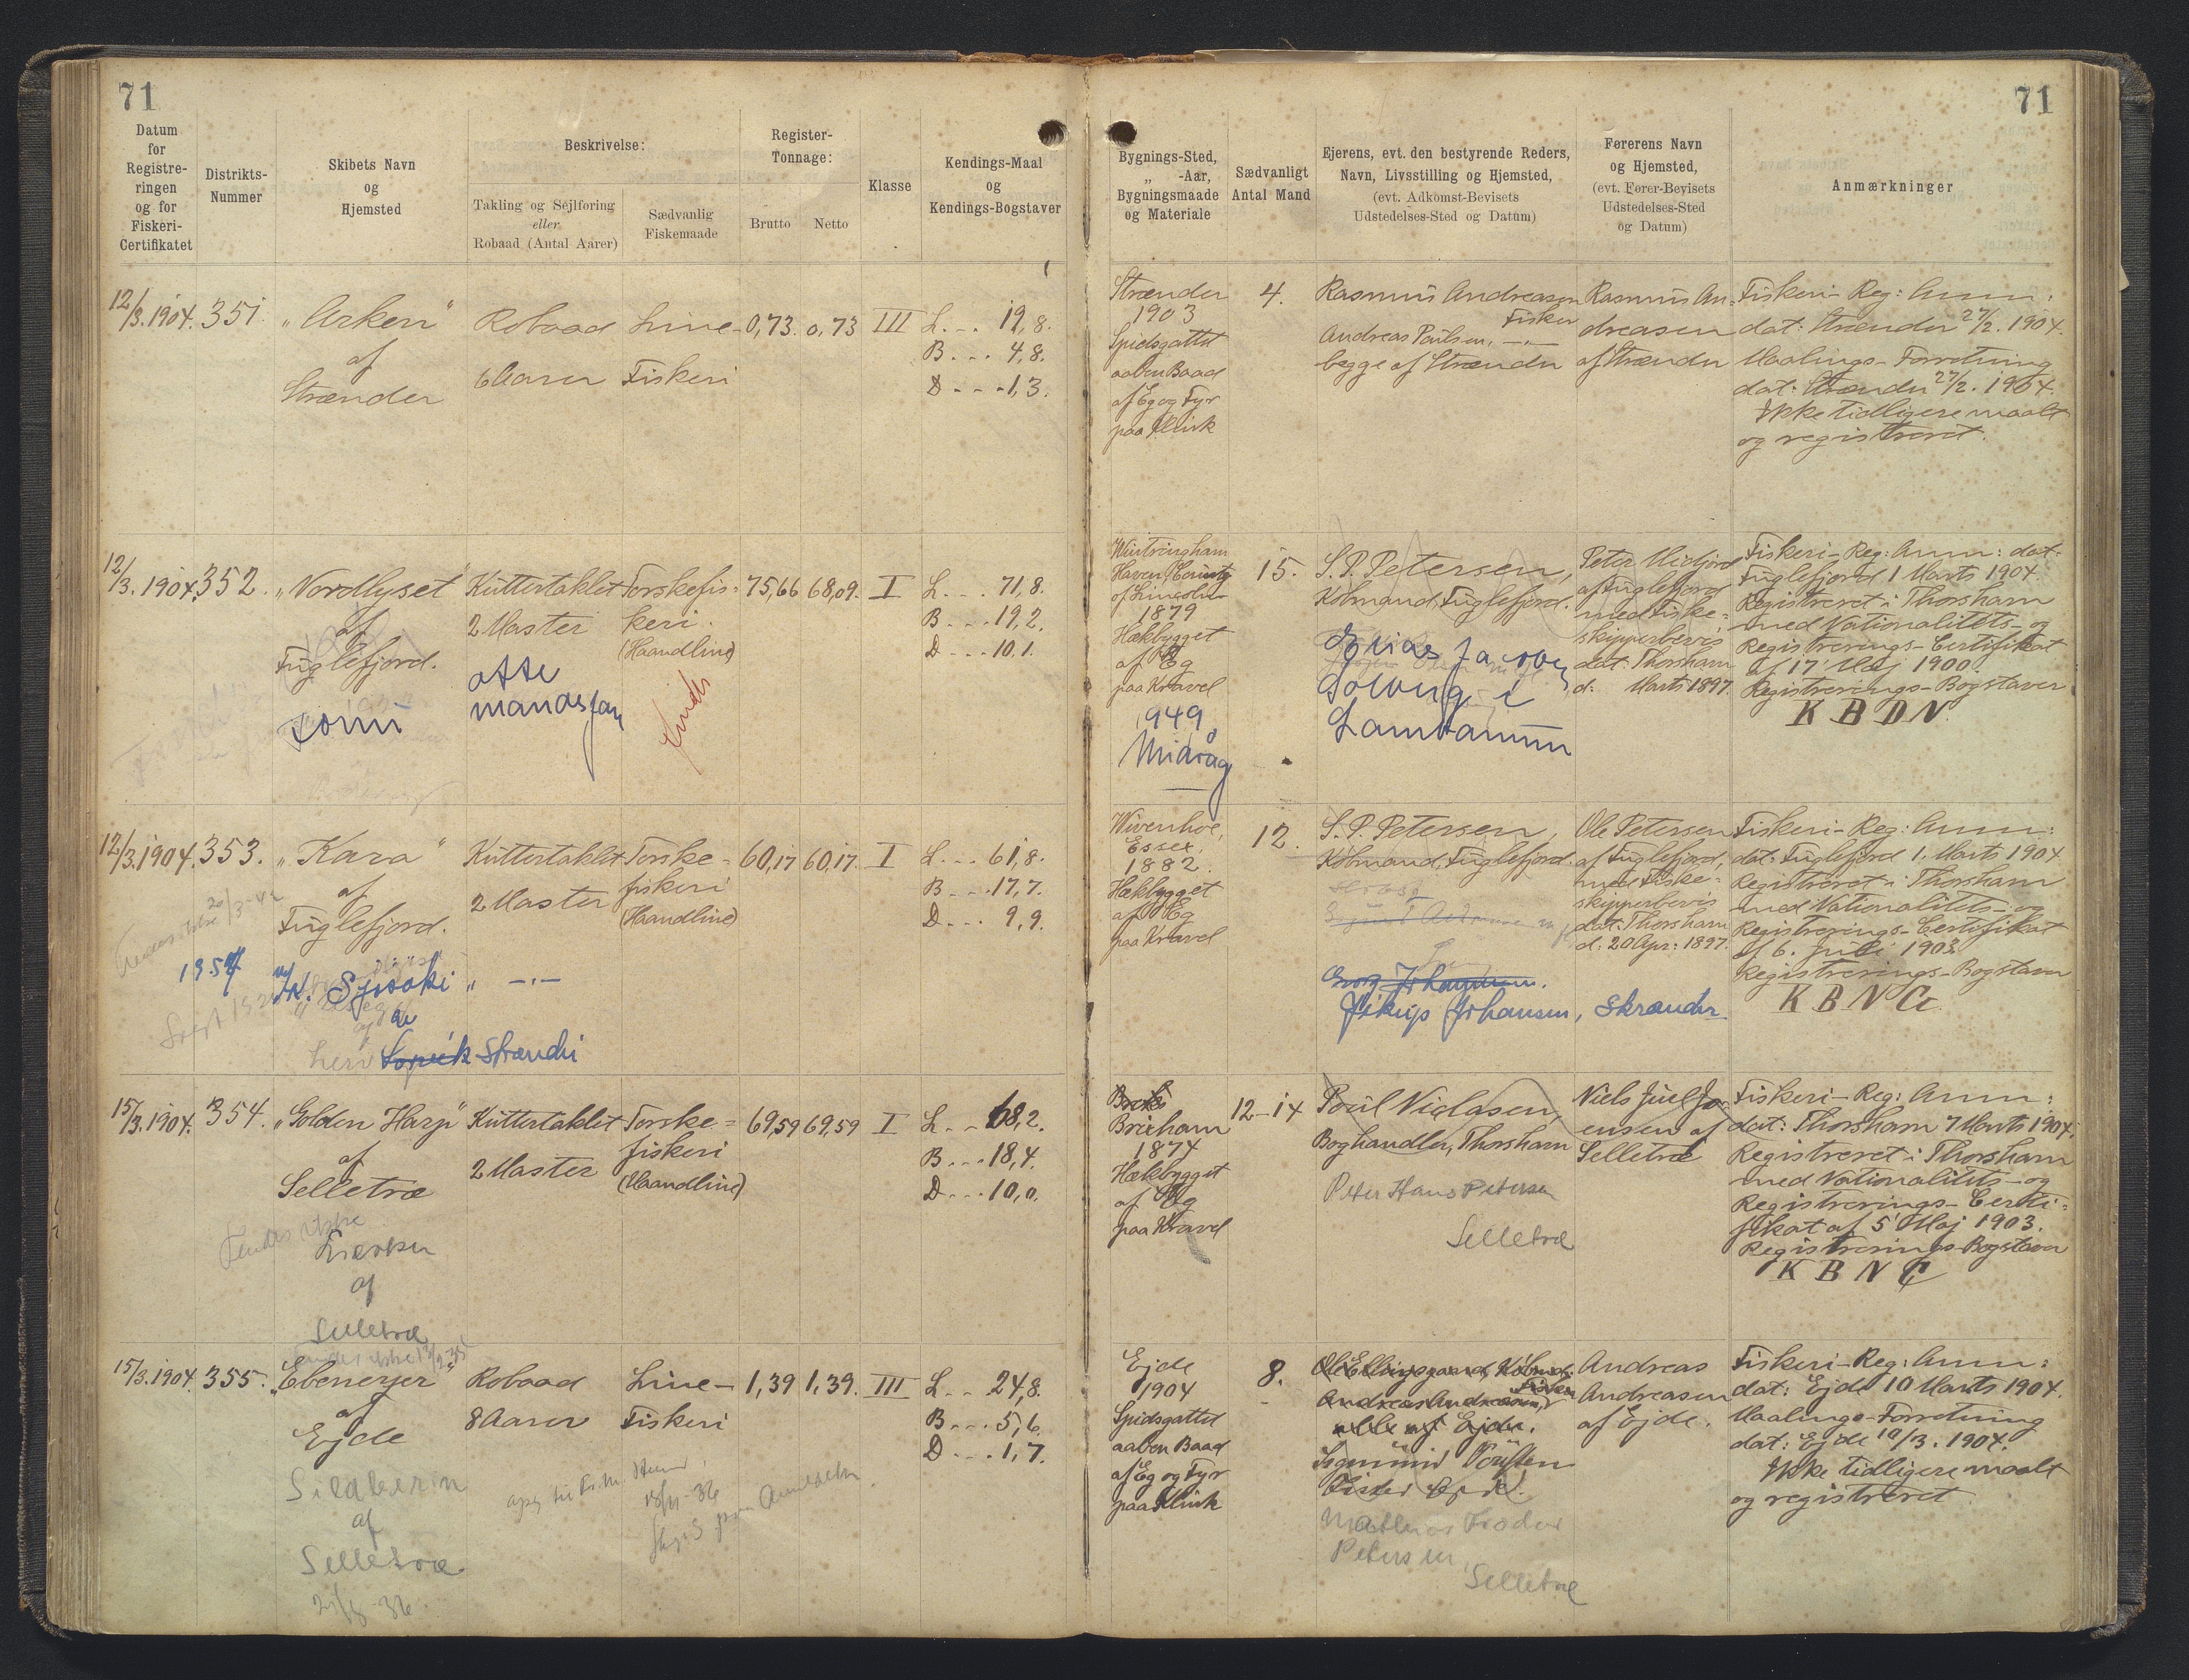 71
71
Datum
for
Registre-
ringen
og for
Fiskeri-
Certifikatet
Distrikts-
Nummer
Skibets Navn
og
Hjemsted
Beskrivelse:
Takling og Sejlføring
eller
Robaad (Antal Aarer)
Sædvanlig
Fiskemaade
Register-
Tonnage:
Brutto
Netto
Klasse
Kendings-Maal
og
Kendings-Bogstaver
Bygnings-Sted,
„ -Aar,
Bygningsmaade
og Materiale
Sædvanligt
Antal Mand
Ejerens, evt. den bestyrende Reders,
Navn, Livsstilling og Hjemsted,
(evt. Adkomst-Bevisets
Udstedelses-Sted og Datum)
Førerens Navn
og Hjemsted,
(evt. Fører-Bevisets
Udstedelses-Sted
og Datum)
Anmærkninger
12/3. 1904.
351.
„Arken“
af
Strænder
Robaad
6 Aarer
Line-
Fiskeri
0,73.
0,73
III
L. . . 19,8.
B. . . 4,8.
D. . . 1,3.
Strænder
1903
Spidsgattet
aaben Baad
af Eg og Fyr
paa Klink
4.
Rasmus Andreasen
Fisker
Andreas Poulsen, —„—
begge af Strænder
Rasmus An-
dreasen
af Strænder
Fiskeri-Reg: Anm:
dat: Strænder 27/2. 1904.
Maalings-Forretning
dat: Strænder 27/2. 1904.
Ikke tidligere maalt
og registreret.
12/3. 1904.
352.
„Nordlyset“
af
Fuglefjord.
Kuttertaklet
2 Master
Torskefis-
keri.
(Haandline)
75,66
68,09.
I
L. . . 71,8.
B. . . 19,2.
D. . . 10,1.
Wintringham
Haven County
of Lincoln
1879
Hækbygget
af Eg
paa Kravel
1949
15.
S. P. Petersen,
Købmand, Fuglefjord.
Peter Midjord
af Fuglefjord
med Fiske-
skipperbevis
dat. Thorshavn
d: Marts 1897.
Fiskeri-Reg: Anm: dat:
Fuglefjord 1 Marts 1904.
Registreret i Thorshavn
med Nationalitets- og
Registrerings-Certifikat
af 17 Maj 1900.
Registrerings-Bogstaver
K B D N.
12/3. 1904.
353.
„Kara“
af
Fuglefjord.
Kuttertaklet
2 Master
Torske-
fiskeri
(Haandline)
60,17
60,17.
I
L. . . 61,8.
B. . . 17,7.
D. . . 9,9.
Wivenhoe,
Essex,
1882.
Hækbygget
af Eg
paa Kravel
12.
S. P. Petersen,
Købmand, Fuglefjord.
Ole Petersen
af Fuglefjord,
med Fiske-
skipperbevis
dat. Thorshavn
d: 20 Apr: 1897.
Fiskeri-Reg: Anm:
dat: Fuglefjord 1. Marts 1904.
Registreret i Thorshavn
med Nationalitets- og
Registrerings-Certifikat
af 6. Juli 1903.
Registrerings-Bogstaver
K B N G.
Johansen, Strænder.
Strændri
15/3. 1904.
354.
„Golden Harp“
af
Selletræ
Kuttertaklet
2 Master
Torske-
fiskeri
(Haandline)
69,59
69,59
I
L. . . 68,2.
B. . . 18,4.
D. . . 10,0.
Brixham
1874
Hækbygget
af Eg
paa Kravel
12-14
Poul Niclasen,
Boghandler, Thorshavn
Peter Hans Petersen
Selletræ
Niels Juel Jo-
ensen af
Selletræ
Fiskeri-Reg: Anm:
dat: Thorshavn 7 Marts 1904.
Registreret i Thorshavn
med Nationalitets- og
Registrerings-Certi-
fikat af 5 Maj 1903.
Registrerings-Bogstaver
K B N C
af
Selletræ
15/3. 1904.
355.
„Ebenezer“
af
Ejde
Robaad
8 Aarer
Line-
Fiskeri
1,39
1,39.
III
L. . . 24,8.
B. . . 5,6.
D. . . 1,7.
Ejde
1904
Spidsgattet
aaben Baad
af Eg og Fyr
paa Klink
8.
Andreas Andreasen,
alle af Ejde.
Andreas
Andreasen
af Ejde.
Fiskeri-Reg: Anm:
dat: Ejde 10 Marts 1904.
Maalings-Forretning
dat: Ejde 10/3. 1904.
Ikke tidligere maalt
og registreret
af
Selletræ
Petersen,
Selletræ